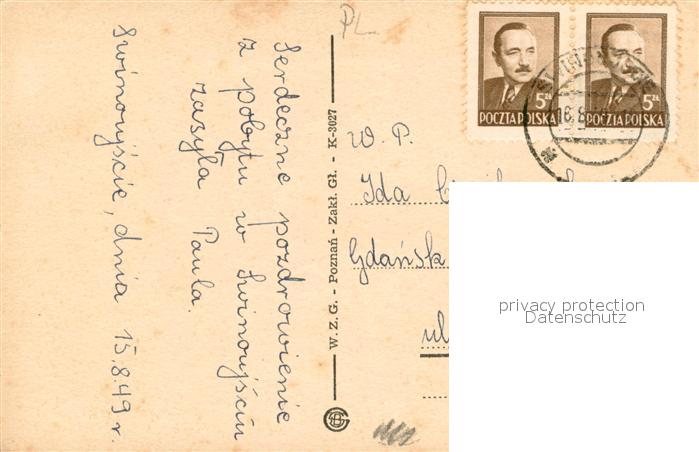 Serdeczne pozdrowienie
z pobytu w Świnoujściu
zasyła
Paula.
Świnoujście, dnia 15.8.49 r.
W. Z. G. - Poznań - Zakł. Gł. - K-3027
PL
5 zł 5 zł
POCZTA POLSKA POCZTA POLSKA
16.8
W. P.
Ida
Gdańsk
ul
privacy protection
Datenschutz